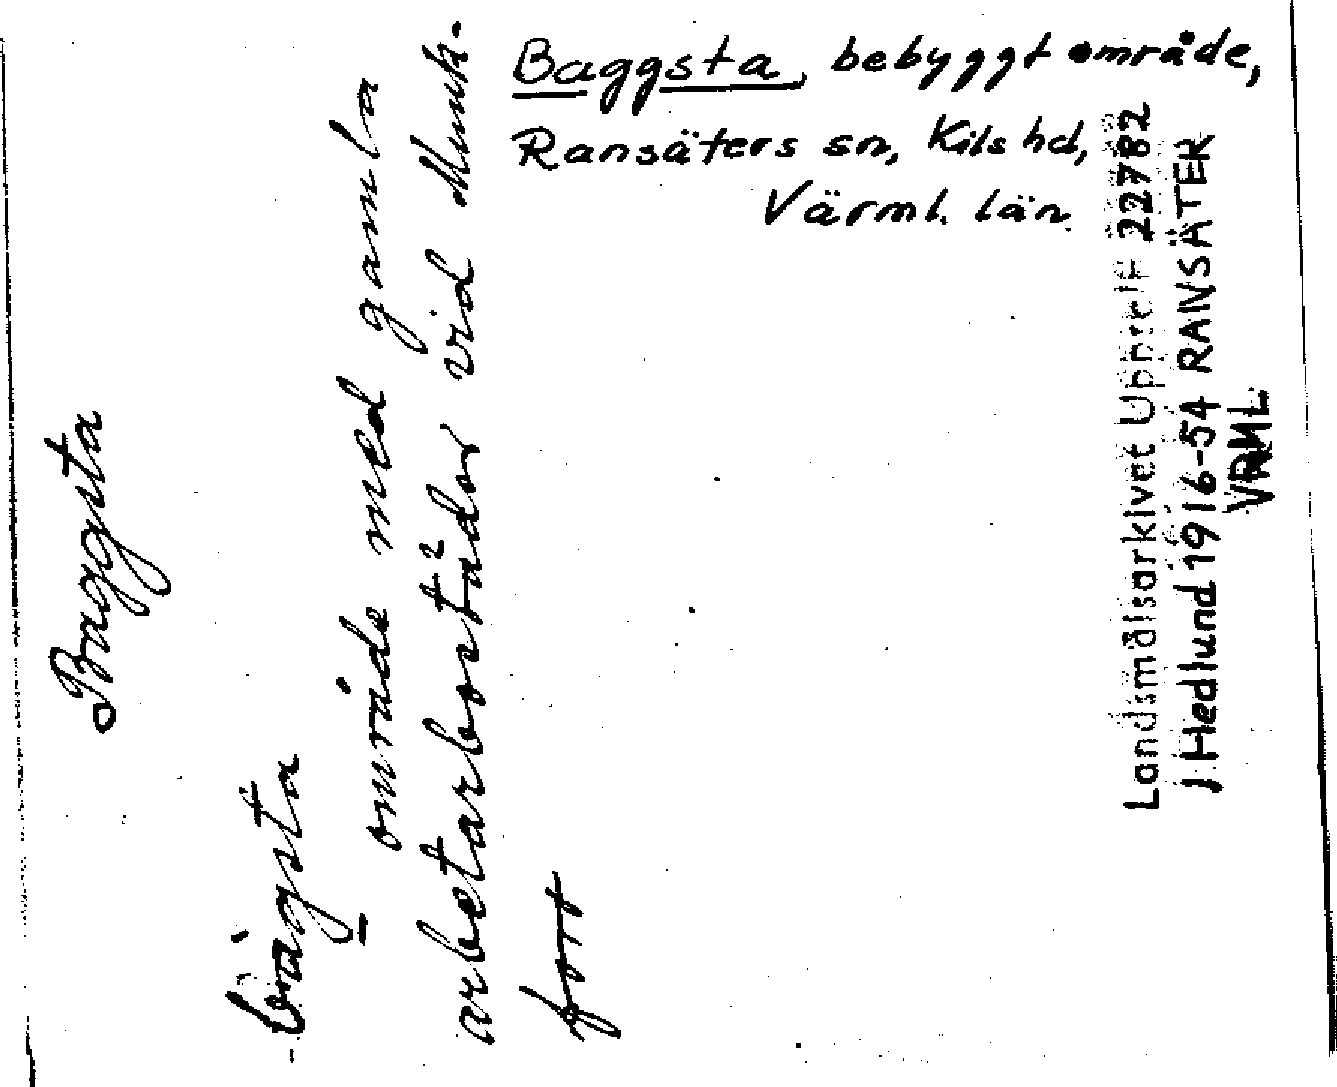 Baggsta, bebyggt område,
Ransäters sn, Kils hd,
Värml. län
Baggsta
område med gamla
arbetarbostäder vid Munk-
fors
Landsmålsarkivet Uppsala 22782
J. Hedlund 1916-54 RANSÄTER
VRML